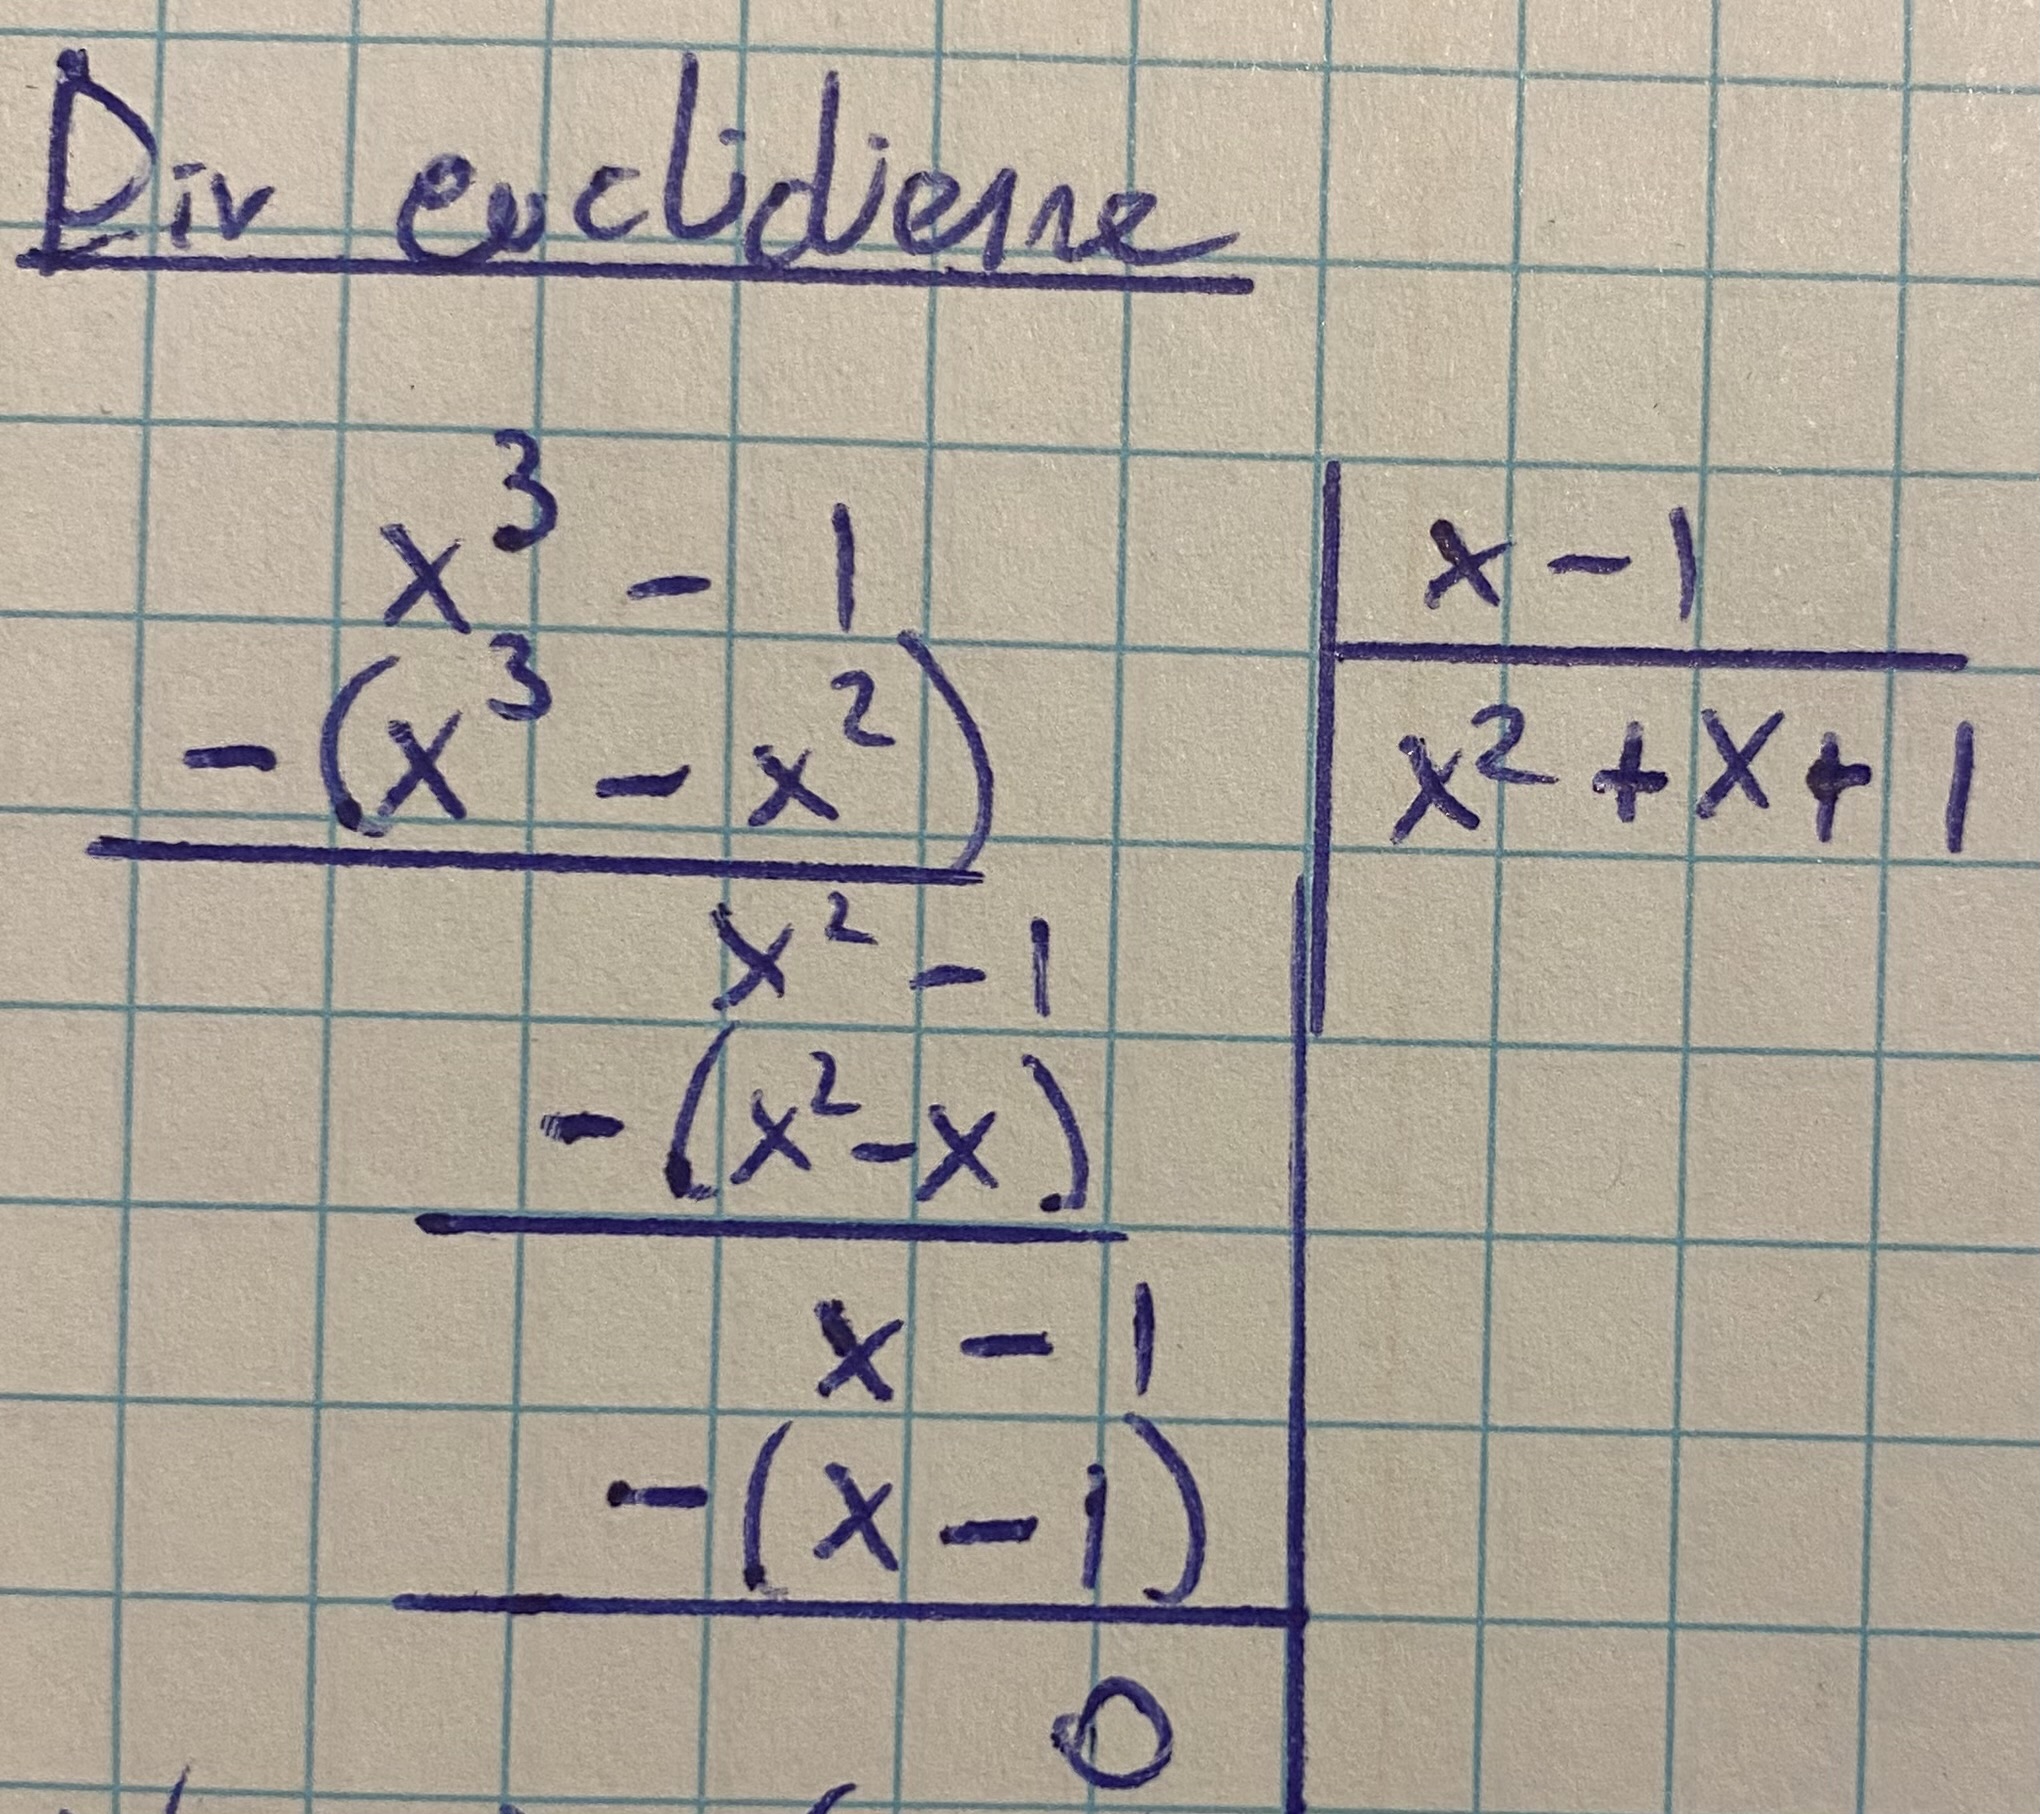 Div euclidienne
x³ - 1 | x - 1
-(x³ - x²) | x² + x + 1
x² - 1
-(x² - x)
x - 1
-(x - 1)
0